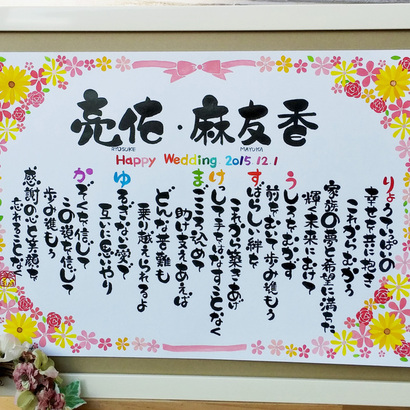 亮佑・麻友香
RYOSUKE
MAYUKA
Happy Wedding 2015.12.1
りょうていっぱいの
幸せを共に抱き
これからむかう
家族の夢と希望に満ちた
輝く未来にむけて
うしろをむかず
前をむいて歩み進もう
すばらしい絆を
これから築きあげ
けっして手をはなすことなく
まごころ込めて
助け支えあえば
どんな苦難も
乗り越えいけるよ
ゆるぎない愛で
互いに思いやり
かぞくを信じて
この道を信じて
歩み進もう
感謝の心と笑顔を
忘れることなく